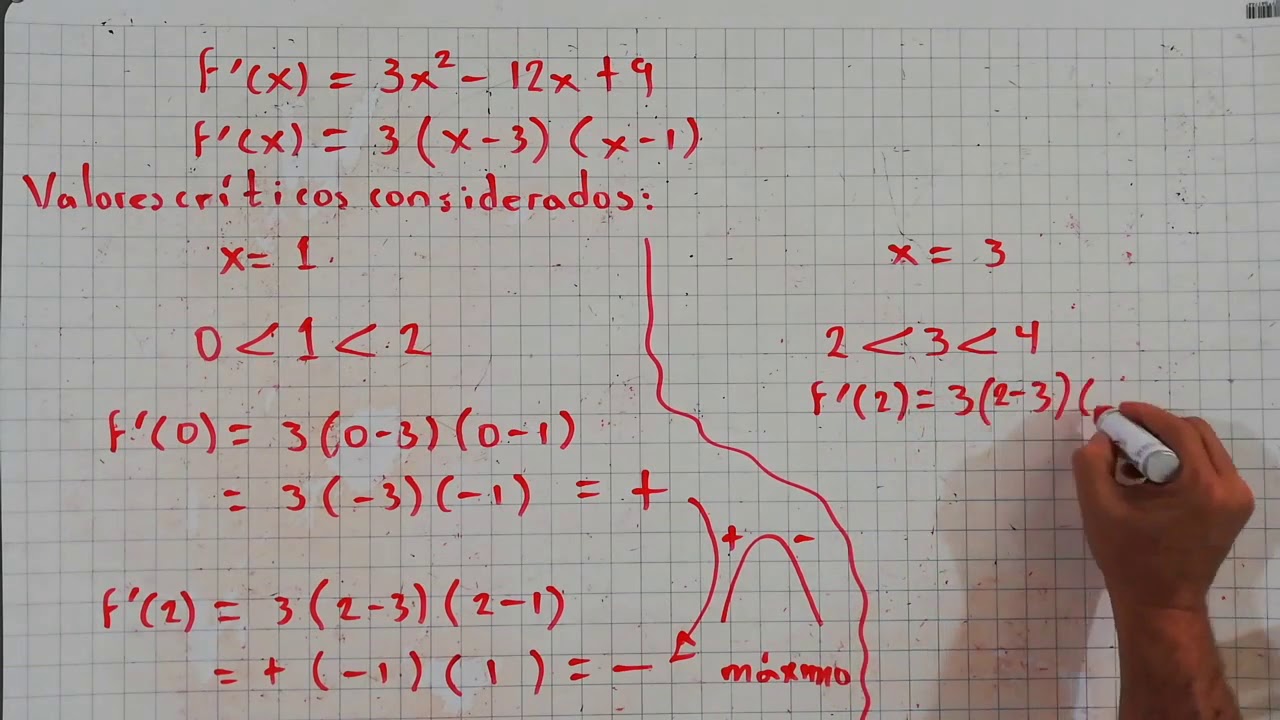 f'(x) = 3x² - 12x + 9
f'(x) = 3(x-3)(x-1)
Valores críticos considerados:
x = 1
0 < 1 < 2
f'(0) = 3(0-3)(0-1)
= 3(-3)(-1) = +
f'(2) = 3(2-3)(2-1)
= +(-1)(1) = -
+ -
máximo
x = 3
2 < 3 < 4
f'(2) = 3(2-3)(